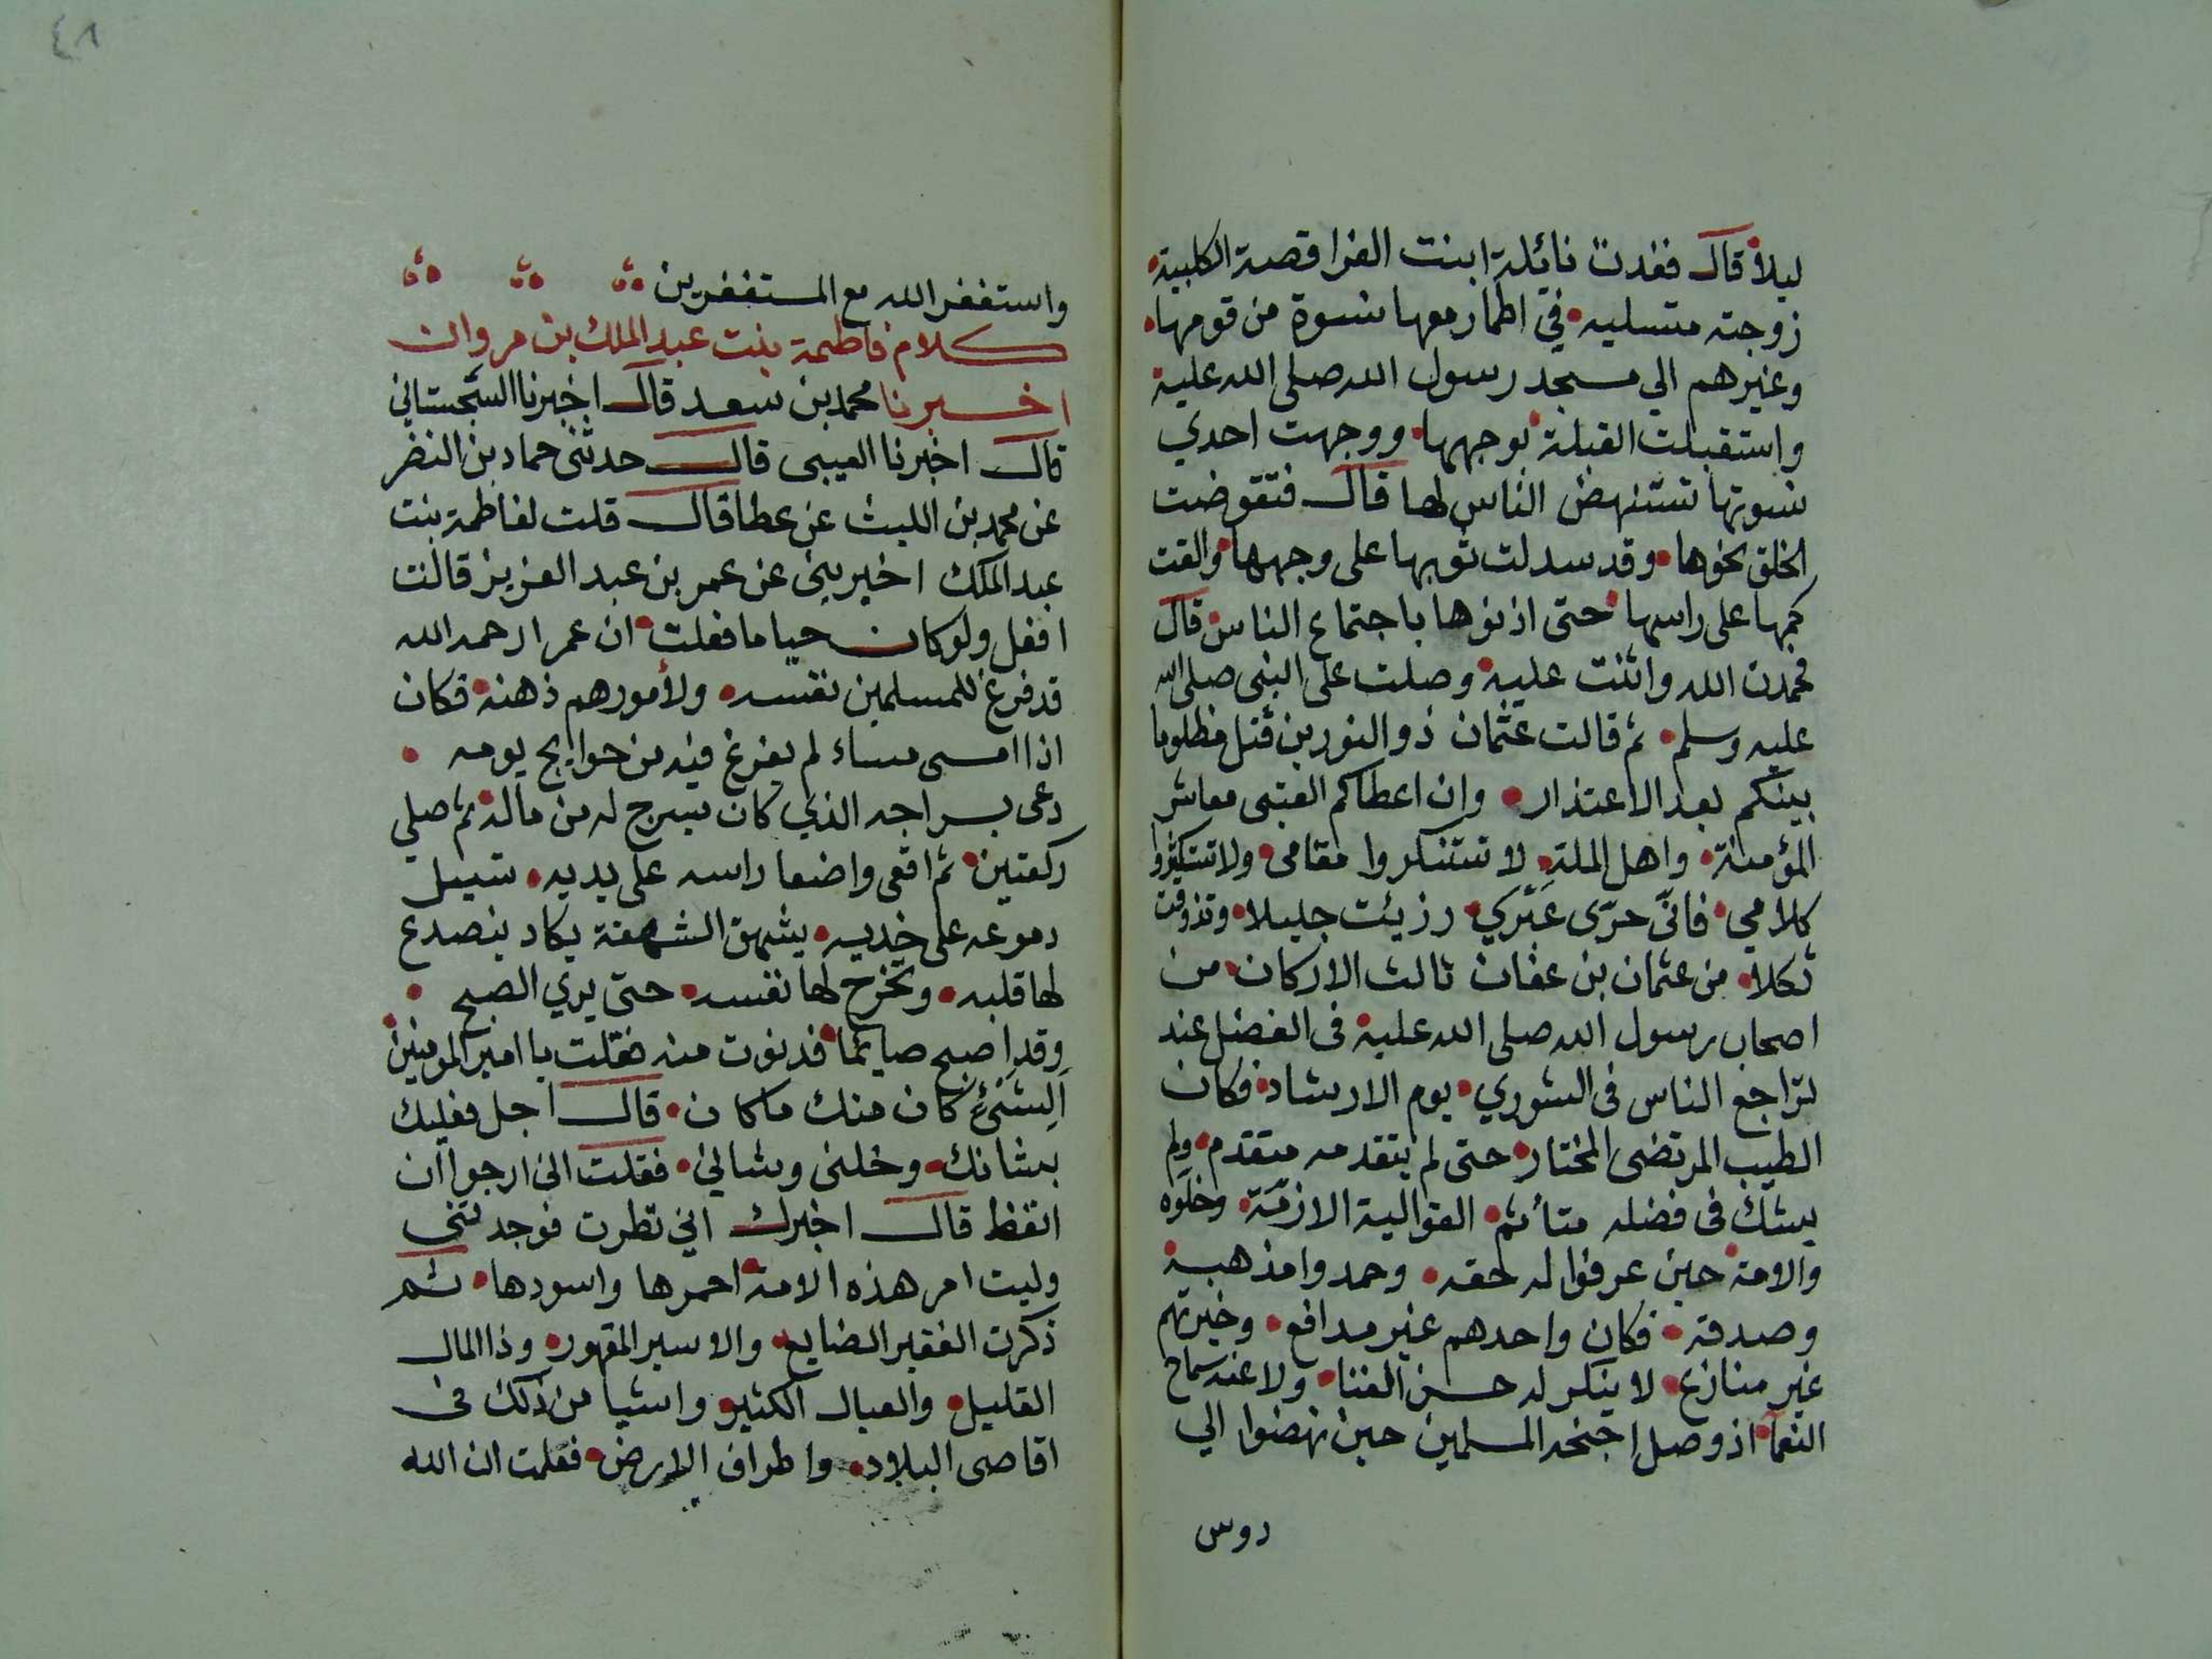 ليلا قال فغدت نائلة ابنت الفرافصة الكلبية
زوجته متسلبه في اطمار معها نسوة من قومها
وغيرهم الي مسجد رسول الله صلى الله علية
واستقبلت القبلة بوجهها ووجهت احدي
نسوتها تستنهض الناس لها قال فتقوضت
الخلق نحوها وقد سدلت ثوبها على وجهها والقت
كمها على راسها حتى اذنوها باجتماع الناس قال
فحمدت الله واثنت علية وصلت على النبى صلى الله
عليه وسلم ثم قالت عثمان ذو النورين قتل مظلوما
بينكم بعد الاعتذار وان اعطاكم العتبى معاشر
المؤمنة واهل الملة لا تستنكروا مقامى ولا تستكثروا
كلامي فانى حرى عبرى رزيئت جليلا وتذوقت
ثكلا من عثمان بن عفان ثالث الاركان من
اصحاب رسول الله صلى الله علية فى الفضل عند
تراجع الناس فى الشوري يوم الارشاد فكان
الطيب المرتضى المختار حتى لم يتقدمه متقدم ولم
يشك فى فضله متأثم القوا الية الازمة وخلوه
والامة حين عرفوا له حقه وحمدوا مذهبة
وصدقه فكان واحدهم غير مدافع وخيرتهم
غير منازع لا ينكر له حسن الغنا ولا عنه سماح
النعما اذ وصل اجنحه المسلمين حين نهضوا الي
دوس
٤٨
واستغفر الله مع المستغفرين
كلام فاطمة بنت عبد الملك بن مروان
اخبرنا محمد بن سعد قال اخبرنا السجستاني
قال اخبرنا العيبى قال حدثنى حماد بن النضر
عن محمد بن الليث عن عطا قال قلت لفاطمة بنت
عبد الملك اخبريني عن عمر بن عبد العزيز قالت
افعل ولو كان حيا ما فعلت ان عمر رحمه الله
قد فرغ للمسلمين نفسه ولأمورهم ذهنه فكان
اذا امسى مساء لم يفرغ فيه من حوايج يومه
دعى بسراجه الذي كان يسرج له من ماله ثم صلي
ركعتين ثم اقعى واضعا راسه على يديه تسيل
دموعه على خديه يشهق الشهقة يكاد ينصدع
لها قلبه وتخرج لها نفسه حتى يري الصبح
وقد اصبح صايما فدنوت منه فقلت يا امير المومنين
أَلِشَيْء كان منك ما كان قال اجل فعليك
بشانك وخلنى وشاني فقلت انى ارجو ان
اتعظ قال اخبرك اني نظرت فوجدتنى
وليت امر هذه الامة احمرها واسودها ثم
ذكرت الفقير الضايع والاسير المقهور وذا المال
القليل والعيال الكثير واشيا من ذلك فى
اقاصى البلاد واطراف الارض فعلمت ان الله